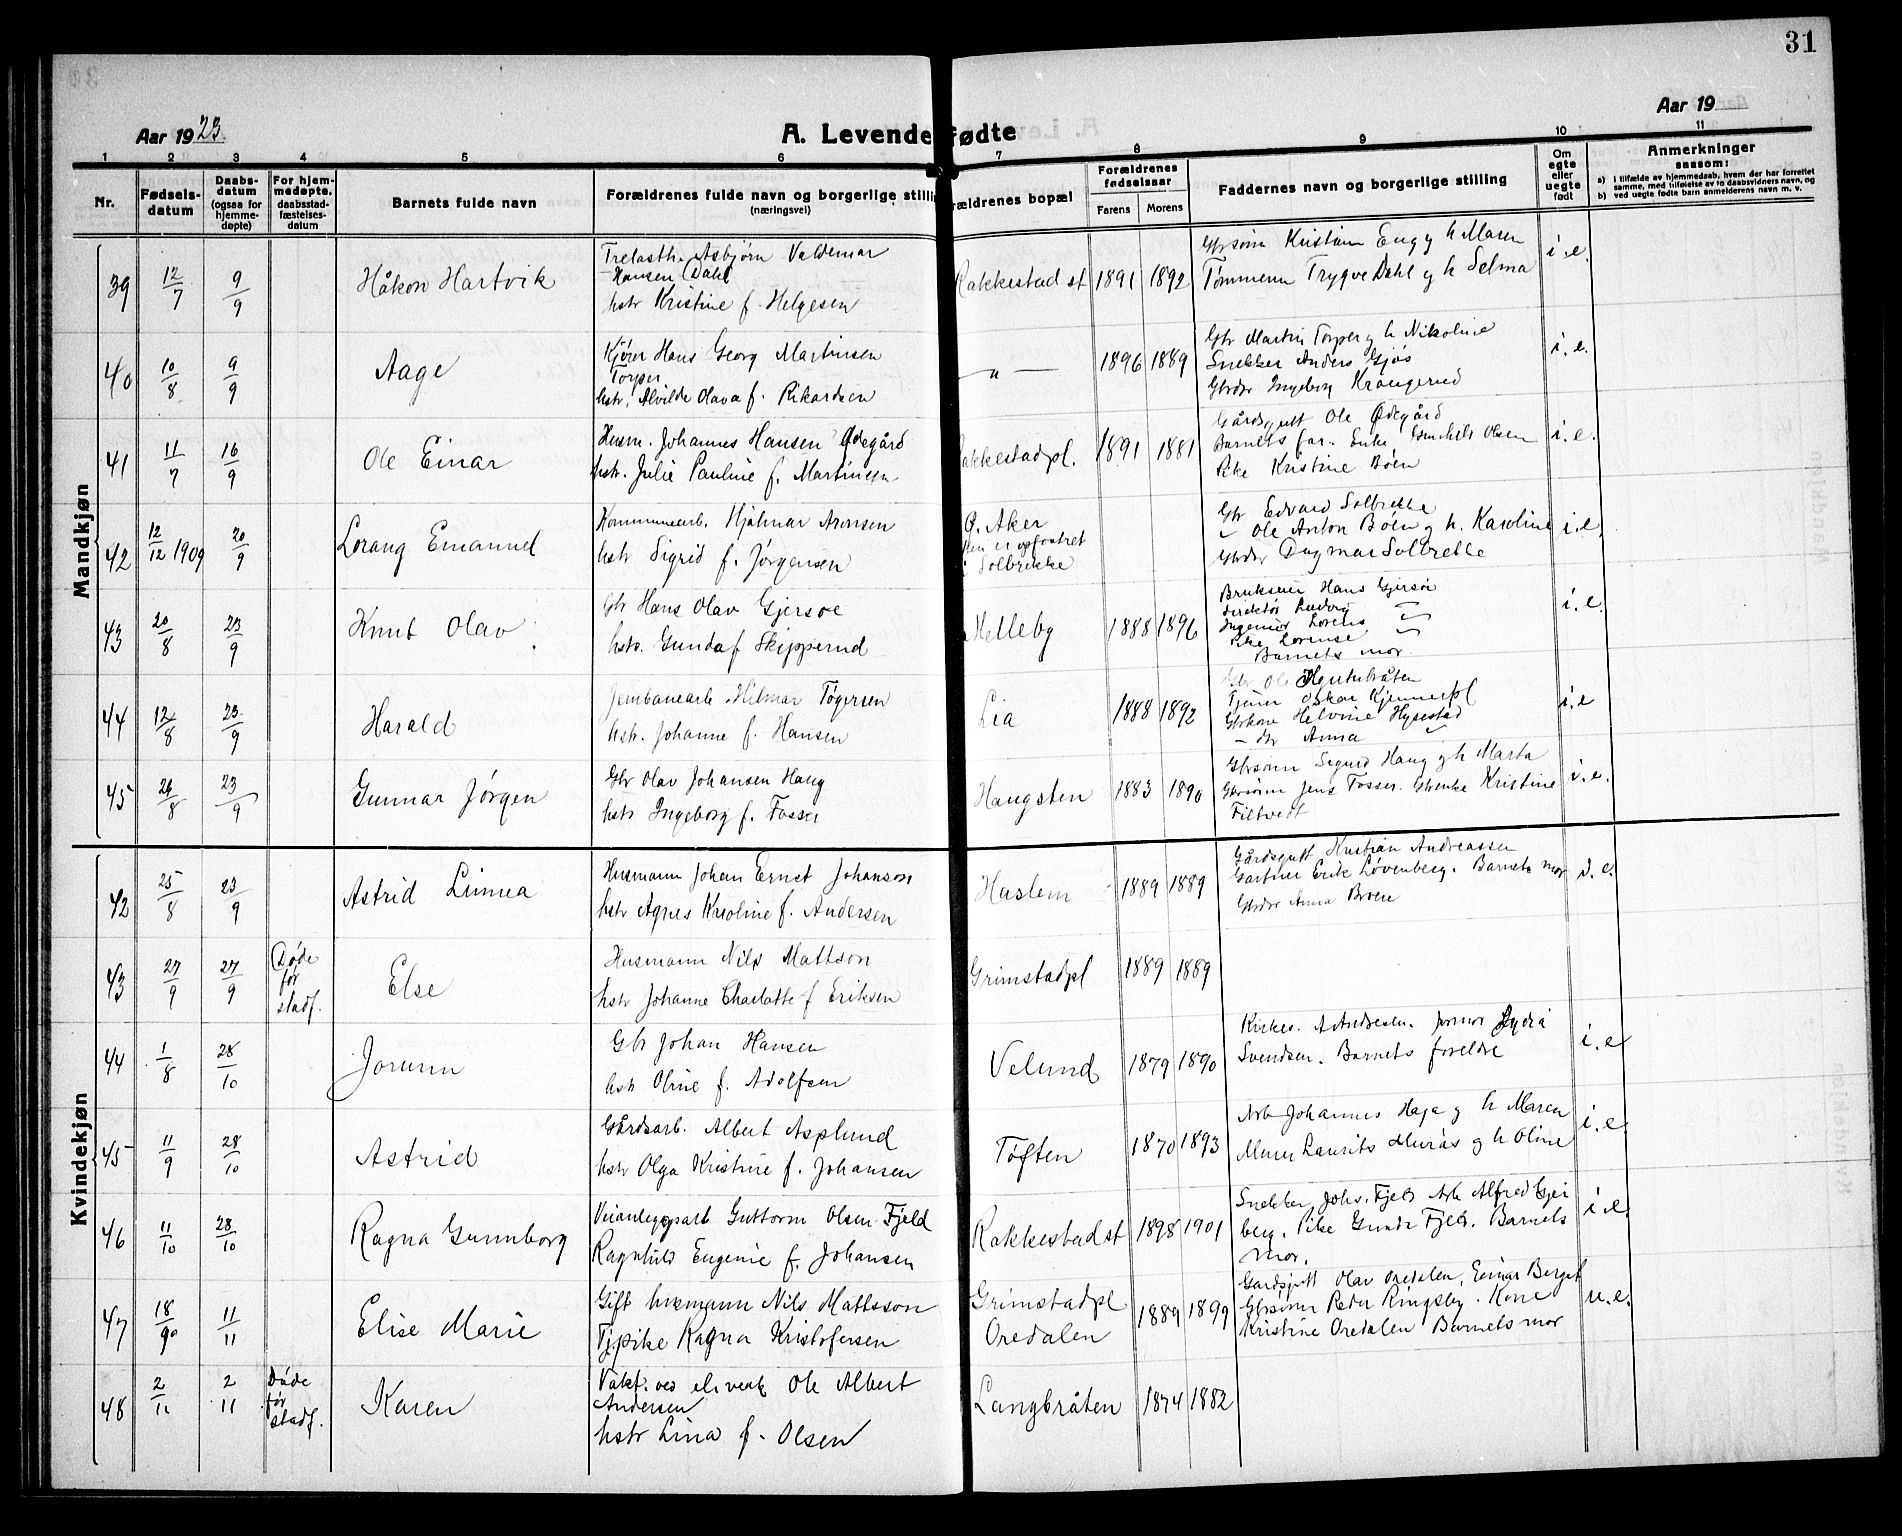 31
Aar 1923
A. Levendefødte
Aar 19
1 2 3 4 5 6 7 8 9 10 11
Nr.
Fødselsdatum
Daabsdatum (ogsaa for hjemmedøpte)
For hjemmedøpte. daabsstadfæstelsesdatum
Barnets fulde navn
Forældrenes fulde navn og borgerlige stilling (næringsvei)
ældrenes bopæl
Forældrenes fødselsaar
Farens Morens
Faddernes navn og borgerlige stilling
Om egte eller uegte født
Anmerkninger saasom:
a) i tilfælde av hjemmedaab, hvem der har forrettet samme, med tilføielse av to daabsvidners navn, og
b) ved uegte fødte barn anmelderens navn m. v.
Mandkjøn
39 12/7 9/9 Håkon Hartvik
Trelasth. Asbjørn Valdemar
Hansen Dahl
hstr Kristine f. Helgesen
Rakkestad st 1891 1892
Gbrsønn Kristian Eng og h Maren
Tømmerm Trygve Dahl og h Selma
i.e.
40 10/8 9/9 Aage
Kjører Hans Georg Martinsen
Torper
hstr. Alvilde Olava f. Rikardsen
— " — 1896 1889
Gbr Martin Torper og h Nikoline
Snekker Anders Gjøs
Gbrdtr Ingeborg Krangerud
i.e.
41 11/7 16/9 Ole Einar
Husm. Johannes Hansen Ødegård
hstr. Julie Pauline f. Martinsen
akkestadpl. 1891 1881
Gårdsgutt Ole Ødegård
Barnets far. Enke Olsen
Pike Kristine Bøen
i.e.
42 12/12 1909 20/9 Lorang Emanuel
Kommunearb. Hjalmar Aronsen
hstr Sigrid f. Jørgensen
Ø. Aker
en er opfostret
i Solbrekke
Gbr Edvard Solbrekke
" Ole Anton Bøen og h. Karoline
Gbrdtr Dagmar Solbrekke
i.e.
43 20/8 23/9 Knut Olav
Gbr Hans Olav Gjersøe
hstr. Gunda f Skipperud
Melleby 1888 1896
Brukseier Hans Gjersøe
direktør Ludvig "
Ingeniør Lorens "
Pike Lorense "
Barnets mor
i.e.
44 12/8 23/9 Harald
Jernbanearb. Hilmar Tøgersen
hstr. Johanne f. Hansen
Lia 1888 1892
Gbr Ole
Tjener Oskar
Gbrkone Helvine Hysestad
— dtr Anna "
i.e
45 26/8 23/9 Gunnar Jørgen
Gbr Olav Johansen Haug
hstr Ingeborg f. Fosser
Haugsten 1883 1890
Gbrsønn Sigurd Haug og h Marta
Gbrsønn Jens Fosser. Gbrenke Kristine
Filtvedt
i.e.
Kvindekjøn
42 25/8 23/9 Astrid Linnea
Husmann Johan Ernst Johanson
hstr Agnes Karoline f. Andersen
Haslem 1889 1889
Gårdsgutt Kristian Andreassen
Gartner Erik Løvenberg. Barnets mor
Gbrdtr Anna Broen
i.e.
43 27/9 27/9 Døde før stadf.
Else
Husmann Nils Mattson
hstr Johanne Charlotte f Eriksen
Grimstadpl 1889 1889
44 1/8 28/10 Jorunn
Gbr Johan Hansen
hstr Oline f. Adolfsen
Velund 1879 1890
Kirkes. A Andresen. Lydia
Svendsen. Barnets foreldre
i.e
45 11/9 28/10 Astrid
Gårdsarb. Albert Asplund
hstr Olga Kristine f. Johansen
Tøften 1870 1893
Arb Johannes Haga og h Maren
Murer Laurits Murås og h Oline
i.e
46 11/10 28/10 Ragna Gunnborg
Veianlegsarb Guttorm Olsen Fjeld
Ragnhild Eugenie f. Johansen
Rakkestad st 1898 1901
Snekker Johs. Fjeld Arb Alfred Gjei
berg. Pike Gunda Fjeld. Barnets
mor.
i.e.
47 18/90 11/11 Elise Marie
Gift husmann Nils Mattsson
Tj.pike Ragna Kristofersen
Grimstadpl
Oredalen
1889 1899
Gardsgutt Olav Oredalen, Einar Berget
Gbrsønn Peder Ringsby. Kone
Kristine Oredalen Barnets mor
u.e.
48 2/11 2/11 Døde før stadf.
Karen
Vakt. ved el. verk Ole Albert
Andersen
hstr Lina f. Olsen
Langbråten 1874 1882